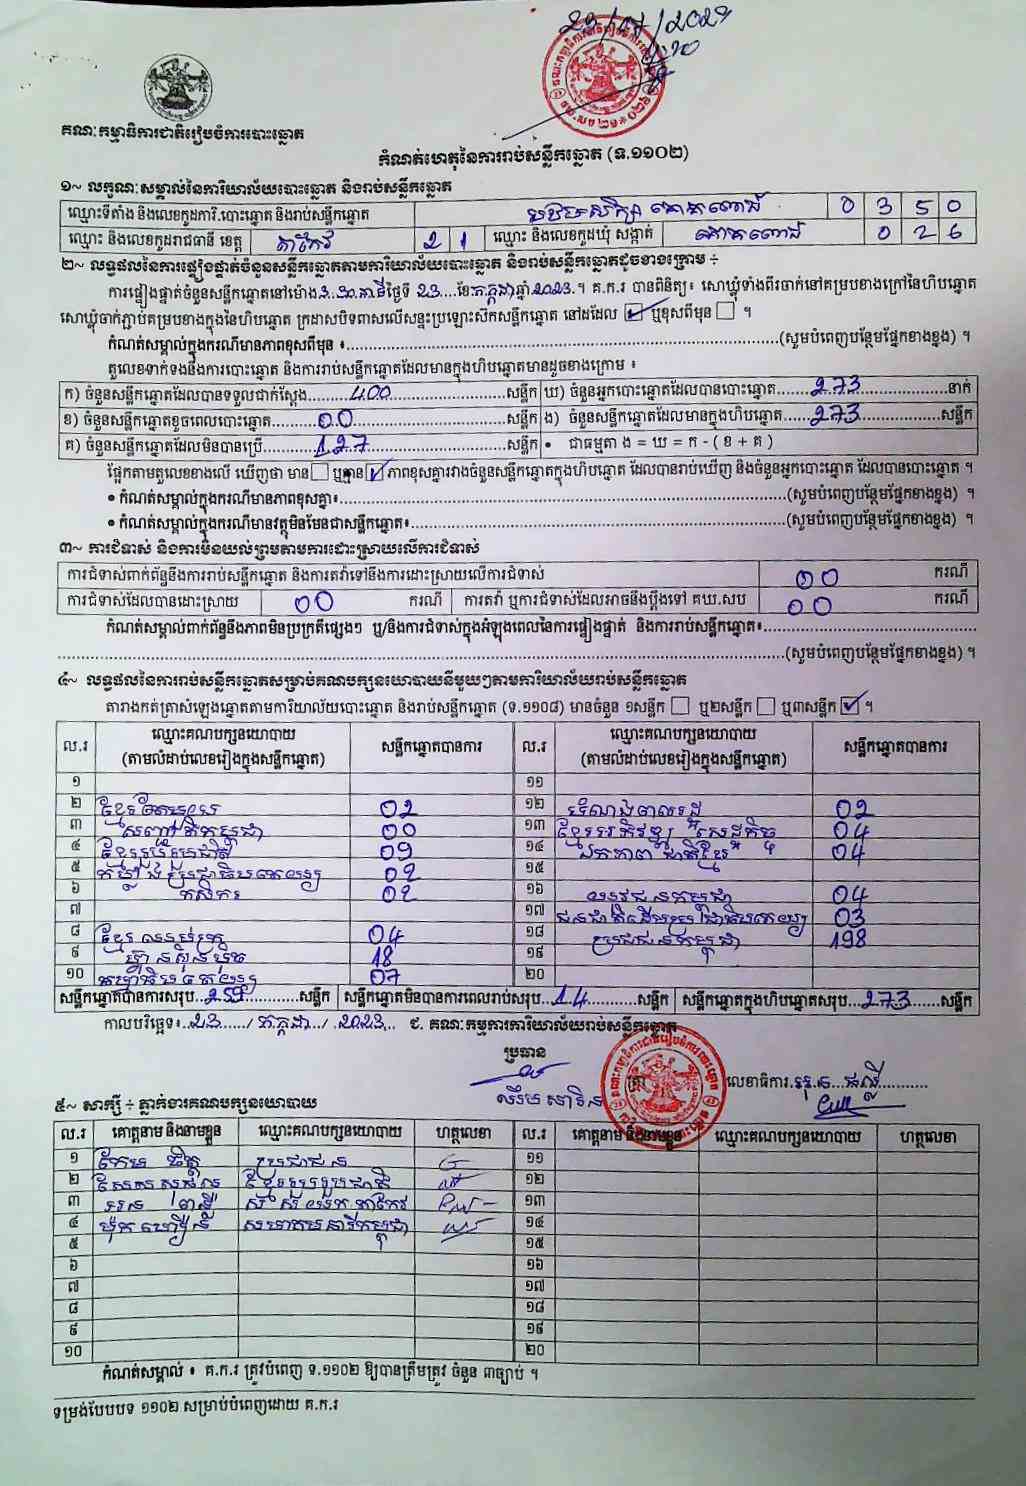 ២៣/០៧/២០២៣
គណៈកម្មាធិការជាតិរៀបចំការបោះឆ្នោត
កំណត់ហេតុនៃការរាប់សន្លឹកឆ្នោត (ទ.១១០២)
១~ លក្ខណៈសម្គាល់នៃការិយាល័យបោះឆ្នោត និងរាប់សន្លឹកឆ្នោត
ឈ្មោះទីតាំង និងលេខកូដការិ.បោះឆ្នោត និងរាប់សន្លឹកឆ្នោត បឋមសិក្សា គោកពោធិ៍ 0 3 5 0
ឈ្មោះ និងលេខកូដរាជធានី ខេត្ត តាកែវ 2 1 ឈ្មោះ និងលេខកូដឃុំ សង្កាត់ គោកពោធិ៍ 0 2 6
២~ លទ្ធផលនៃការផ្ទៀងផ្ទាត់ចំនួនសន្លឹកឆ្នោតតាមការិយាល័យបោះឆ្នោត និងរាប់សន្លឹកឆ្នោតដូចខាងក្រោម ÷
ការផ្ទៀងផ្ទាត់ចំនួនសន្លឹកឆ្នោតនៅម៉ោង 3.30 នាទី ថ្ងៃទី 23 ខែ កក្កដា ឆ្នាំ 2023 ។ គ.ក.រ បានពិនិត្យ៖ សោឃ្លុំទាំងពីរចាក់នៅគម្របខាងក្រៅនៃហិបឆ្នោត
សោឃ្លុំចាក់ភ្ជាប់គម្របខាងក្នុងនៃហិបឆ្នោត ក្រដាសបិទពាសលើសន្ទះប្រឡោះស៊កសន្លឹកឆ្នោត នៅដដែល ☑ ឬខុសពីមុន ☐ ។
កំណត់សម្គាល់ក្នុងករណីមានភាពខុសពីមុន ៖ (សូមបំពេញបន្ថែមផ្នែកខាងខ្នង) ។
តួលេខទាក់ទងនឹងការបោះឆ្នោត និងការរាប់សន្លឹកឆ្នោតដែលមានក្នុងហិបឆ្នោតមានដូចខាងក្រោម ៖
ក) ចំនួនសន្លឹកឆ្នោតដែលបានទទួលជាក់ស្តែង 400 សន្លឹក ឃ) ចំនួនអ្នកបោះឆ្នោតដែលបានបោះឆ្នោត 273 នាក់
ខ) ចំនួនសន្លឹកឆ្នោតខូចពេលបោះឆ្នោត 00 សន្លឹក ង) ចំនួនសន្លឹកឆ្នោតដែលមានក្នុងហិបឆ្នោត 273 សន្លឹក
គ) ចំនួនសន្លឹកឆ្នោតដែលមិនបានប្រើ 127 សន្លឹក • ជាធម្មតា ង = ឃ = ក - ( ខ + គ )
ផ្អែកតាមតួលេខខាងលើ ឃើញថា មាន ☐ ឬគ្មាន ☑ ភាពខុសគ្នារវាងចំនួនសន្លឹកឆ្នោតក្នុងហិបឆ្នោត ដែលបានរាប់ឃើញ និងចំនួនអ្នកបោះឆ្នោត ដែលបានបោះឆ្នោត ។
• កំណត់សម្គាល់ក្នុងករណីមានភាពខុសគ្នា៖ (សូមបំពេញបន្ថែមផ្នែកខាងខ្នង) ។
• កំណត់សម្គាល់ក្នុងករណីមានវត្ថុមិនមែនជាសន្លឹកឆ្នោត៖ (សូមបំពេញបន្ថែមផ្នែកខាងខ្នង) ។
៣~ ការជំទាស់ និងការមិនយល់ព្រមតាមការដោះស្រាយលើការជំទាស់
ការជំទាស់ពាក់ព័ន្ធនឹងការរាប់សន្លឹកឆ្នោត និងការតវ៉ាទៅនឹងការដោះស្រាយលើការជំទាស់ 00 ករណី
ការជំទាស់ដែលបានដោះស្រាយ 00 ករណី ការតវ៉ា ឬការជំទាស់ដែលអាចនឹងប្តឹងទៅ គឃ.សប 00 ករណី
កំណត់សម្គាល់ពាក់ព័ន្ធនឹងភាពមិនប្រក្រតីផ្សេងៗ ឬ/និងការជំទាស់ក្នុងអំឡុងពេលនៃការផ្ទៀងផ្ទាត់ និងការរាប់សន្លឹកឆ្នោត៖
(សូមបំពេញបន្ថែមផ្នែកខាងខ្នង) ។
៤~ លទ្ធផលនៃការរាប់សន្លឹកឆ្នោតសម្រាប់គណបក្សនយោបាយនីមួយៗតាមការិយាល័យរាប់សន្លឹកឆ្នោត
តារាងកត់ត្រាសំឡេងឆ្នោតតាមការិយាល័យបោះឆ្នោត និងរាប់សន្លឹកឆ្នោត (ទ.១១០៨) មានចំនួន ១សន្លឹក ☐ ឬ២សន្លឹក ☐ ឬ៣សន្លឹក ☑ ។
ល.រ ឈ្មោះគណបក្សនយោបាយ (តាមលំដាប់លេខរៀងក្នុងសន្លឹកឆ្នោត) សន្លឹកឆ្នោតបានការ ល.រ ឈ្មោះគណបក្សនយោបាយ (តាមលំដាប់លេខរៀងក្នុងសន្លឹកឆ្នោត) សន្លឹកឆ្នោតបានការ
១ ១១
២ ខ្មែរតែមួយ 02 ១២ 02
៣ 00 ១៣ ខ្មែរអភិវឌ្ឍសេដ្ឋកិច្ច 04
៤ ខ្មែររួបរួមជាតិ 09 ១៤ ឯកភាពជាតិខ្មែរ 04
៥ កម្លាំងប្រជាធិបតេយ្យ 02 ១៥
៦ កសិករ 02 ១៦ យុវជនកម្ពុជា 04
៧ ១៧ ជនជាតិដើមប្រជាធិបតេយ្យ 03
៨ ខ្មែរឈប់ក្រ 04 ១៨ ប្រជាជនកម្ពុជា 198
៩ ហ្វ៊ុនស៊ិនប៉ិច 18 ១៩
១០ 07 ២០
សន្លឹកឆ្នោតបានការសរុប 259 សន្លឹក សន្លឹកឆ្នោតមិនបានការពេលរាប់សរុប 14 សន្លឹក សន្លឹកឆ្នោតក្នុងហិបឆ្នោតសរុប 273 សន្លឹក
កាលបរិច្ឆេទ៖ 23 / កក្កដា / 2023 ជ. គណៈកម្មការការិយាល័យរាប់សន្លឹកឆ្នោត
ប្រធាន
លេខាធិការ
៥~ សាក្សី ÷ ភ្នាក់ងារគណបក្សនយោបាយ
ល.រ គោត្តនាម និងនាមខ្លួន ឈ្មោះគណបក្សនយោបាយ ហត្ថលេខា ល.រ គោត្តនាម និងនាមខ្លួន ឈ្មោះគណបក្សនយោបាយ ហត្ថលេខា
១ ប្រជាជន ១១
២ ខ្មែររួបរួមជាតិ ១២
៣ ១៣
៤ ១៤
៥ ១៥
៦ ១៦
៧ ១៧
៨ ១៨
៩ ១៩
១០ ២០
កំណត់សម្គាល់ ៖ គ.ក.រ ត្រូវបំពេញ ទ.១១០២ ឱ្យបានត្រឹមត្រូវ ចំនួន ៣ច្បាប់ ។
ទម្រង់បែបបទ ១១០២ សម្រាប់បំពេញដោយ គ.ក.រ